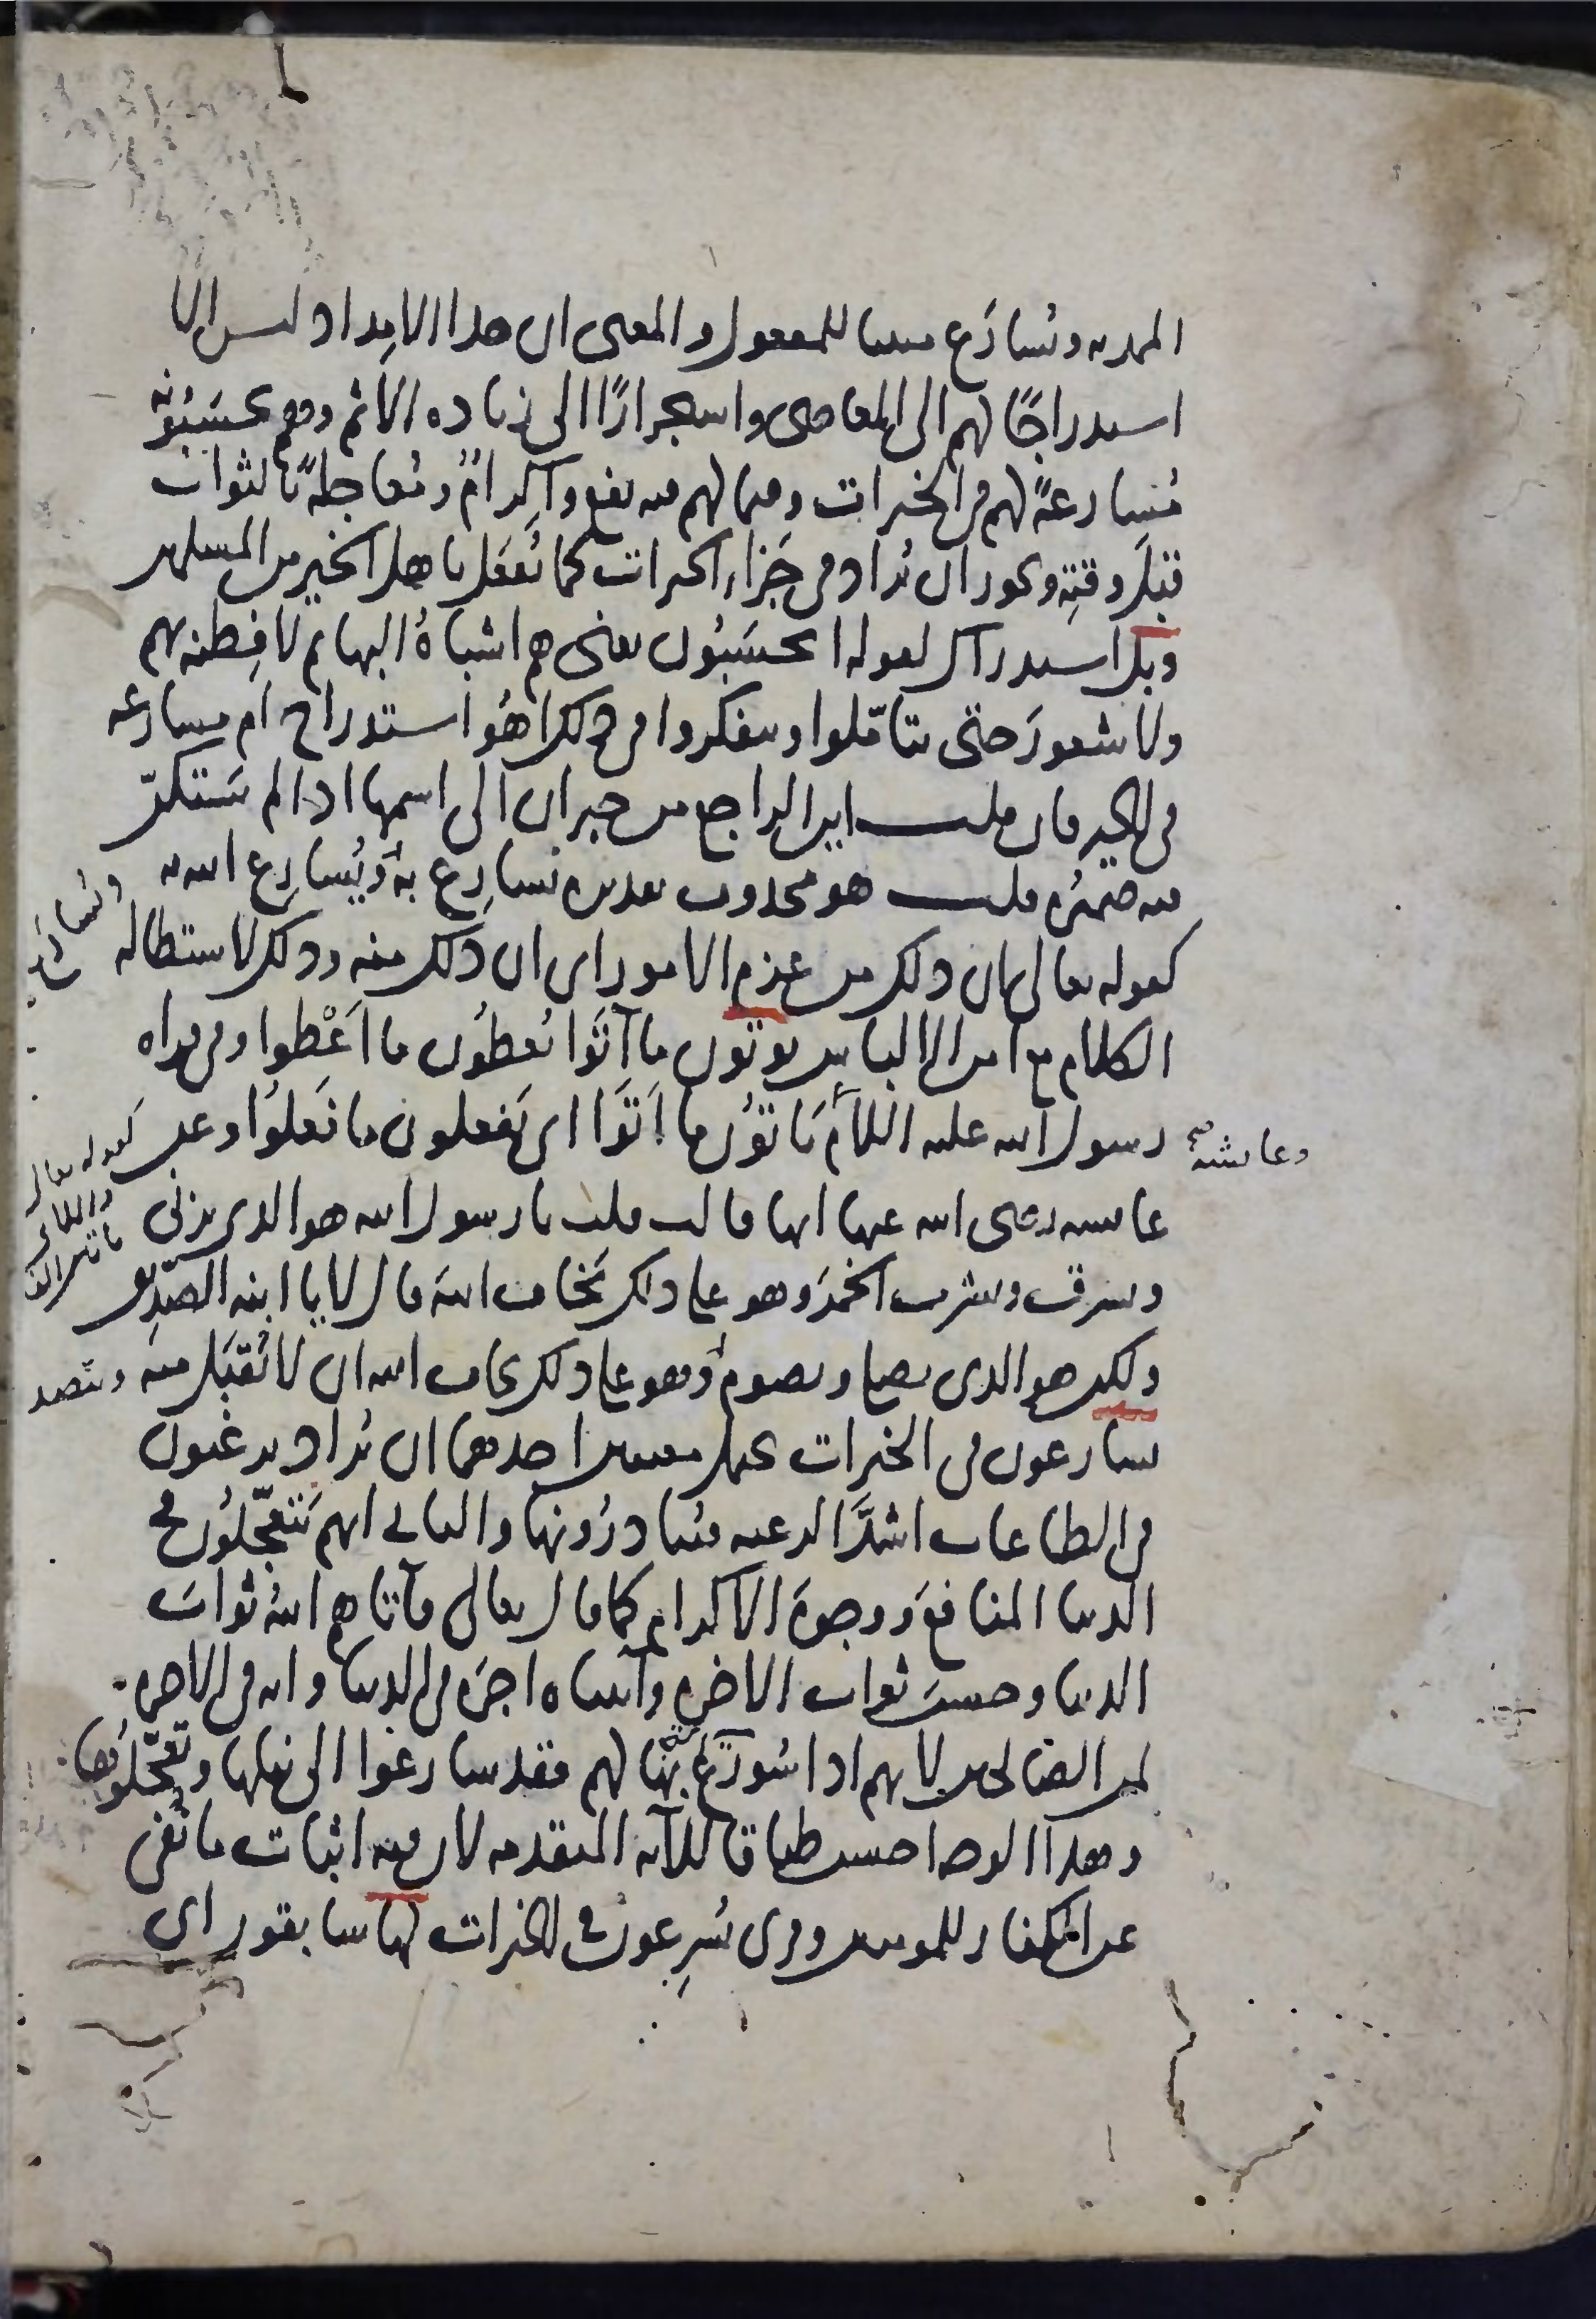 الممد به ونُسَارَع مبنيا للمفعول والمعنى ان هذا الامداد ليس الا
استدراجًا لهم الى المعاصى واستجرارًا الى زياده الاثم وهم يحسَبُونه
مُسَارعةً لهم في الخيرات وفيما لهم فيه نفع واكرامٌ ومُعاجلةً بالثواب
قبل وقتِه ويجوز ان يُراد في جَزاء الخيرات كما يُفعَل باهل الخير من المسلمين
وبل استدراك لقوله ايحسَبُون يعنى هم اشباهُ البهايم لا فِطنه بهم
ولا شعورَ حتى يتامّلوا ويتفكروا في ذلك اهُو استدراج ام مسارعه
في الخير فان قلت اين الراجع من خبر ان الى اسمها اذا لم يَستكنّ
فيه ضميرُه قلت هو محذوف تقديره نسارِع به ويُسارِع الله به
ويُسارَع به
كقوله تعالى ان ذلك من عزم الامور اى ان ذلك منه وذلك لاستطاله
الكلام مع امن الالباس يوتون ما آتَوا يُعطُون ما اَعْطوا وفي قراه
رسول الله عليه السلام وعايشة يَاتوُن ما اَتَوا اى يَفعلون ما فَعلوُا وعن
كقوله تعالى واللاتى ياتين الفاحشة
عايشه رضى الله عنها انها قالت قلت يا رسول الله هو الذى يزنى
ويسرق ويشرب الخمرَ وهو على ذلك يَخاف اللهَ قال لا يا ابنه الصّدِيق
ولكن هو الذى يصلى ويصوم ويتصدق وهو على ذلك يخاف الله ان لا يُقبَل منه
يسارعون في الخيرات يحتمل معنيين احدهما ان يُراد يرغبون
في الطاعات اشدَّ الرغبه فيُبادرُونها والثانى انهم يَتعجّلوُن في
الدنيا المنافعَ ووجوهَ الاكرام كما قال تعالى فآتاهم اللهُ ثوابَ
الدنيا وحسنَ ثواب الاخره وآتيناه اجرَه في الدنيا وانه في الاخره
لمن الصالحين لانهم اذا سُورِعَ بها لهم فقد سارعوا الى نيلها وتعجّلوُها
وهذا الوجه احسن طباقا للآيه المتقدمه لان فيه اثبات ما نُفى
عن الكفار للمومنين وقرى يُسرِعون في الخيرات لها سابقون اى